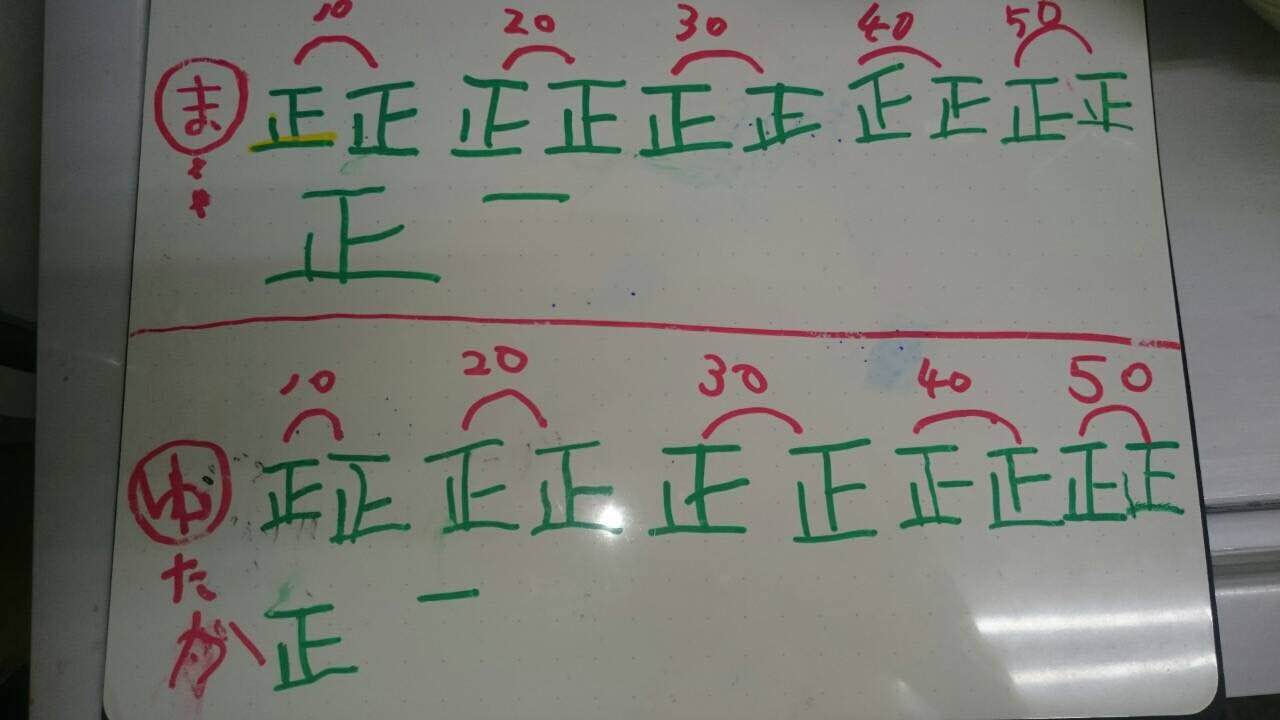 10 20 30 40 50
ま 正正 正正 正正 正正 正正
正 一
10 20 30 40 50
ゆ 正正 正正 正正 正正 正正
たか 正 一